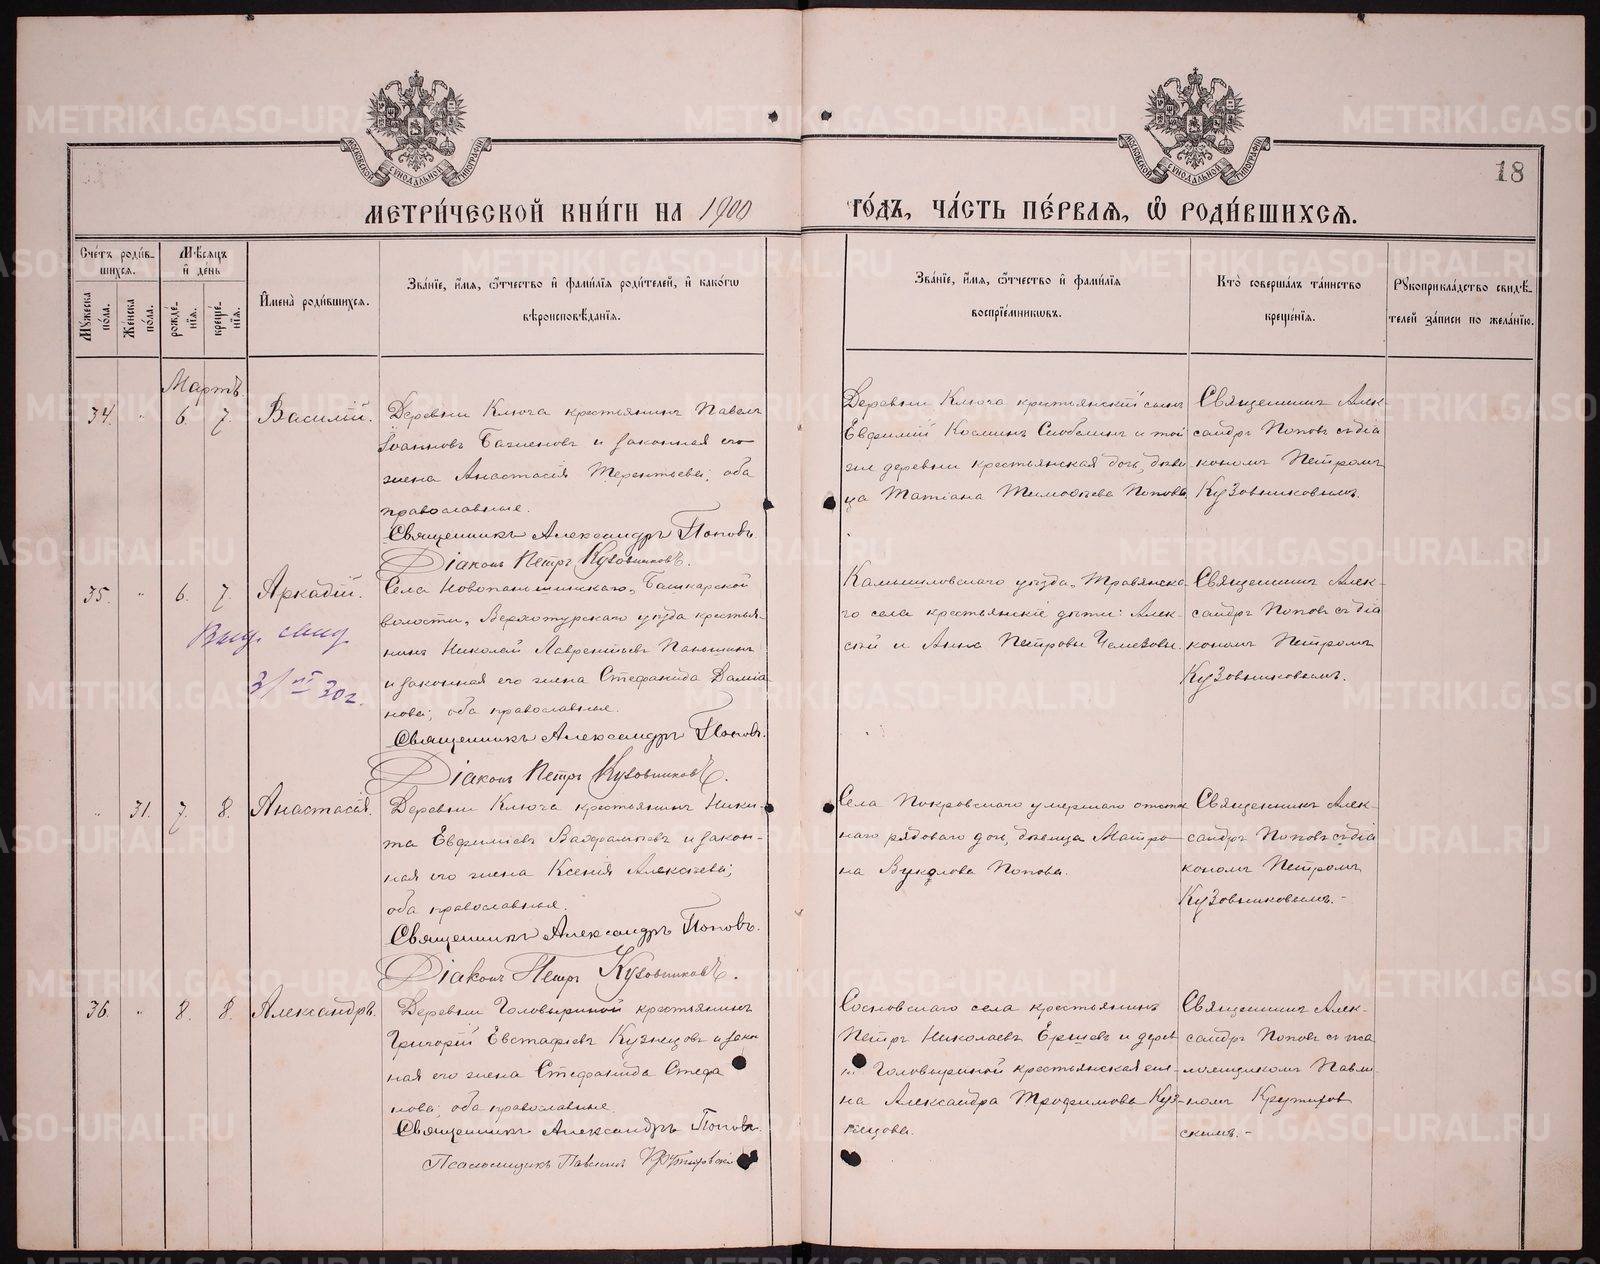 18
МЕТРИ́ЧЕСКОЙ КНИ́ГИ НА 1900
ГО́ДЪ, ЧА́СТЬ ПЕ́РВАЯ, Ѽ РОДИ́ВШИХСЯ.
Сче́тъ роди́в-
шихся.
Мѣ́сяцъ
и҆ де́нь
Му́жеска по́ла.
Же́нска по́ла.
рожде́-
нїя.
креще́-
нїя.
И҆мена̀ роди́вшихся.
Зва́нїе, и҆́мя, ѻ҆́тчество и҆ фами́лїя роди́телей, и҆ како́гѡ
вѣроисповѣ́данїя.
Зва́нїе, и҆́мя, ѻ҆́тчество и҆ фами́лїя
воспрїе́мниковъ.
Кто̀ соверша́лъ та́инство
креще́нїя.
Рꙋкоприкла́дство свидѣ́-
телей за́писи по жела́нїю.
Мартъ.
34. " 6. 7. Василій.
Деревни Ключа крестьянинъ Павелъ
Іоанновъ и законная его
жена Анастасія Терентьева; оба
православные.
Священникъ Александръ Поповъ.
Діаконъ Петръ Кузовниковъ.
Деревни Ключа крестьянскій сынъ
Евфимій Косминъ и той
же деревни крестьянская дочь, дѣви-
ца Татіана Тимоѳеева Попова.
Священникъ Алек-
сандръ Поповъ съ діа-
кономъ Петромъ
Кузовниковымъ.
35. " 6. 7. Аркадій.
Выд. свид.
3/VI 30 г.
Села Новопаньшинскаго, Башкарской
волости, Верхотурскаго уѣзда крестья-
нинъ Николай Лаврентьевъ Паньшинъ
и законная его жена Стефанида Даміа-
нова; оба православные.
Священникъ Александръ Поповъ.
Діаконъ Петръ Кузовниковъ.
Камышловскаго уѣзда, Травянска-
го села крестьянскіе дѣти: Алек-
сѣй и Анна Петровы Чемезовы.
Священникъ Алек-
сандръ Поповъ съ діа-
кономъ Петромъ
Кузовниковымъ.
" 31. 7. 8. Анастасія.
Деревни Ключа крестьянинъ Ники-
та Евфиміевъ и закон-
ная его жена Ксенія Алексѣева;
оба православные.
Священникъ Александръ Поповъ.
Діаконъ Петръ Кузовниковъ.
Села Покровскаго умершаго отстав-
наго рядоваго дочь, дѣвица Матро-
на Вукулова Попова.
Священникъ Алек-
сандръ Поповъ съ діа-
кономъ Петромъ
Кузовниковымъ.-
36. " 8. 8. Александръ.
Деревни Головыриной крестьянинъ
Григорій Евстафіевъ Кузнецовъ и закон-
ная его жена Стефанида Стефа-
нова; оба православные.
Священникъ Александръ Поповъ.
Псаломщикъ Павлинъ Крутиховскій
Сосновскаго села крестьянинъ
Петръ Николаевъ Ершовъ и дерев-
ни Головыриной крестьянская жена
Александра Трофимова Куз-
нецова.
Священникъ Алек-
сандръ Поповъ съ пса-
ломщикомъ Павли-
номъ Крутихов-
скимъ.-
METRIKI.GASO-URAL.RU